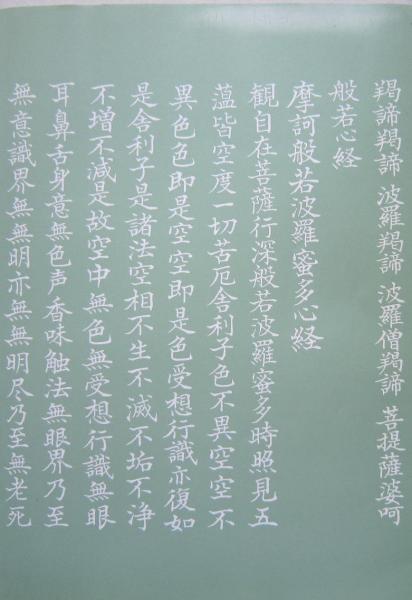 羯諦羯諦 波羅羯諦 波羅僧羯諦 菩提薩婆呵
般若心経
摩訶般若波羅蜜多心経
観自在菩薩行深般若波羅蜜多時照見五
蘊皆空度一切苦厄舎利子色不異空空不
異色色即是空空即是色受想行識亦復如
是舎利子是諸法空相不生不滅不垢不浄
不増不減是故空中無色無受想行識無眼
耳鼻舌身意無色声香味触法無眼界乃至
無意識界無無明亦無無明尽乃至無老死